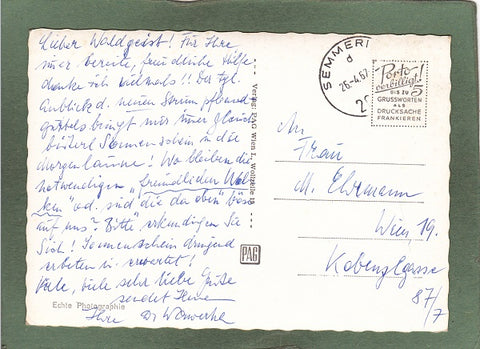 Lieber Waldgeist! Für Ihre
immer bereite, freundliche Hilfe
danke ich vielmals!! Der tgl.
Anblick d. neuen
bringt mir immer gleich
Sonnenschein in die
Morgenlaune! Wo bleiben die
notwendigen „freundlichen Wol-
ken" od. sind „die da oben" böse
auf uns? Bitte, erkundigen Sie
Sich! Sonnenschein dringend
erbeten u. erwartet!
Viele, viele sehr liebe Grüße
sendet Ihnen
Ihre Dr
Echte Photographie
Verlag PAG Wien I, Wollzeile
PAG
SEMMERI
d
26.-4.67
Porto-
verbilligt!
BIS ZU 5
GRUSSWORTEN
ALS
DRUCKSACHE
FRANKIEREN
An
Frau
M. Ehrmann
Wien, 19.
Kobenzlgasse
87/7